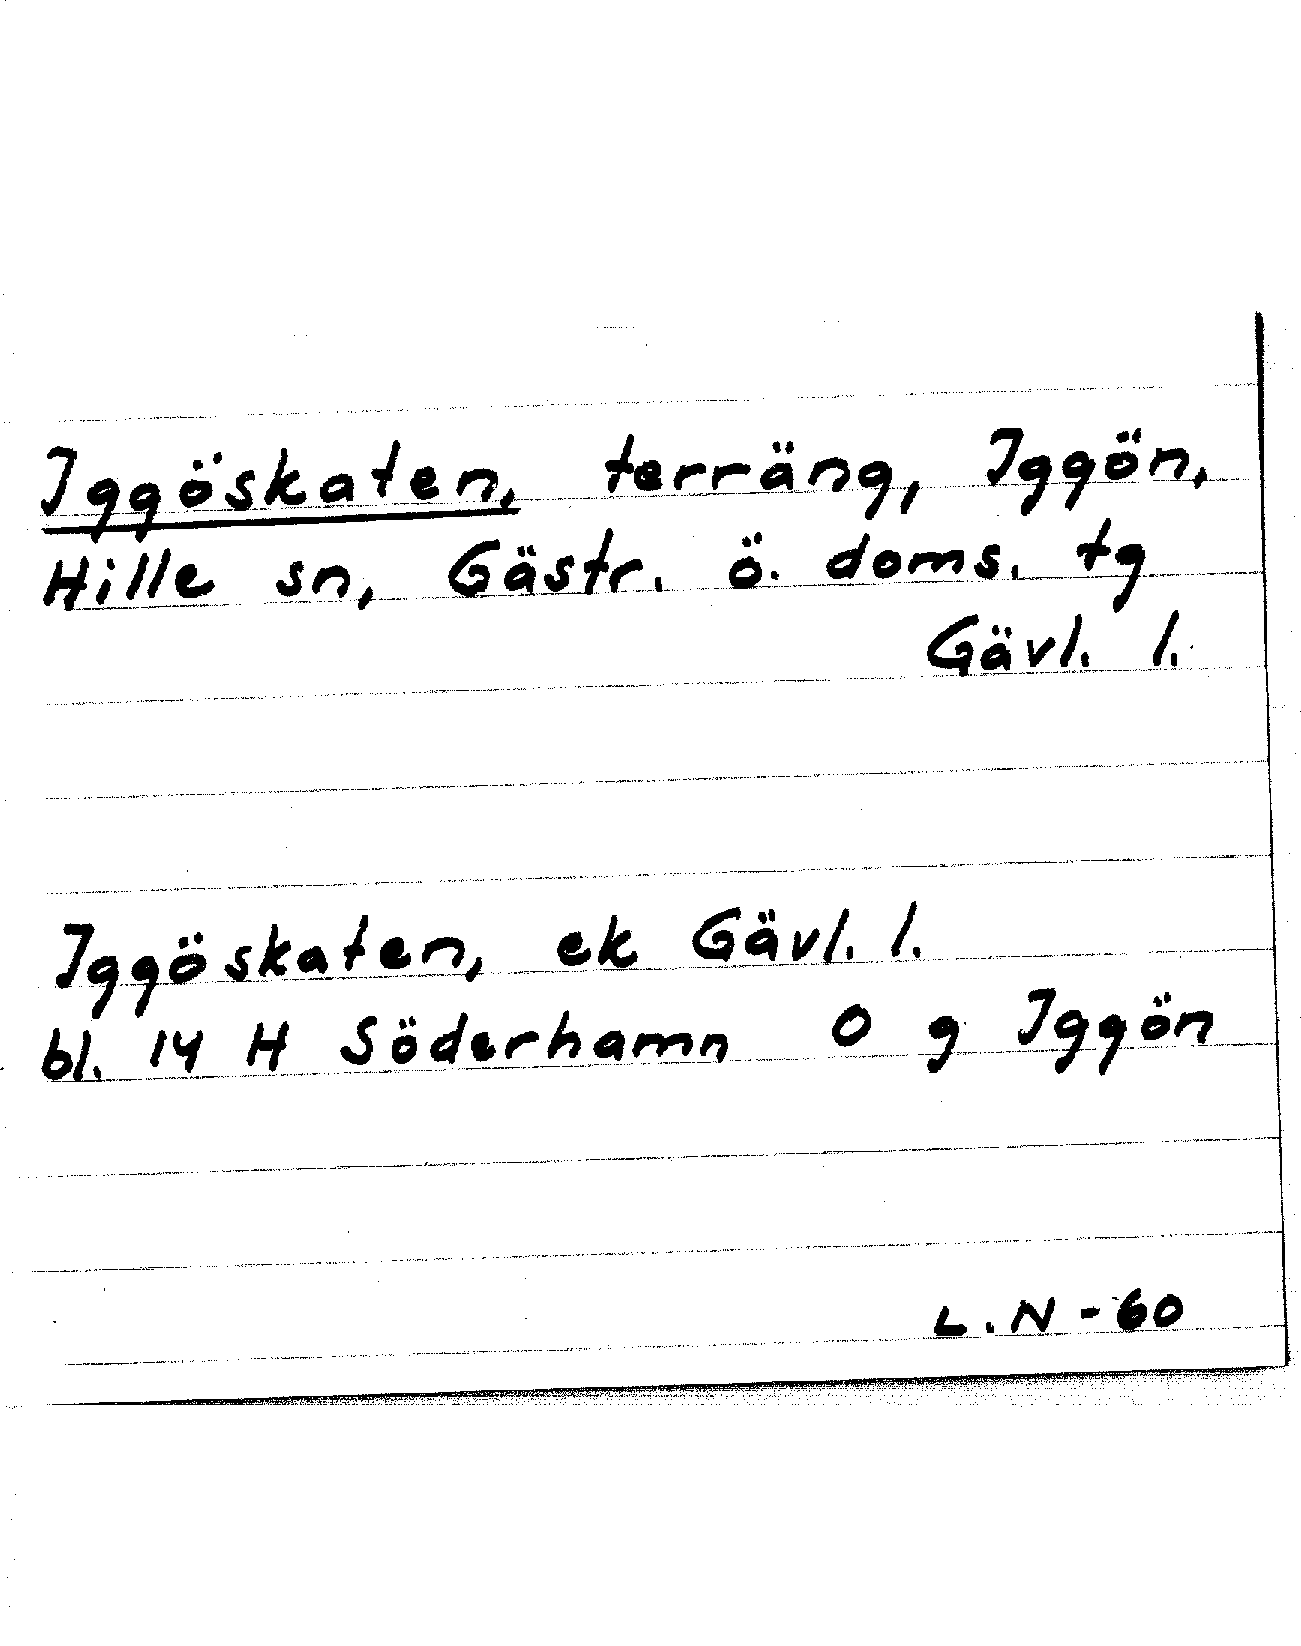 Iggöskaten, terräng, Iggön,
Hille sn, Gästr. ö. doms. tg
Gävl. l.
Iggöskaten, ek Gävl. l.
bl. 14 H Söderhamn O g Iggön
L.N-60